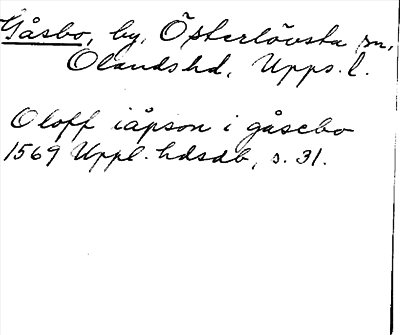 Gåsbo, by, Österlövsta sn,
Olands hd, Upps. l.
Oloff iåpson i gåsebo
1569 Uppl. hdsdb, s. 31.